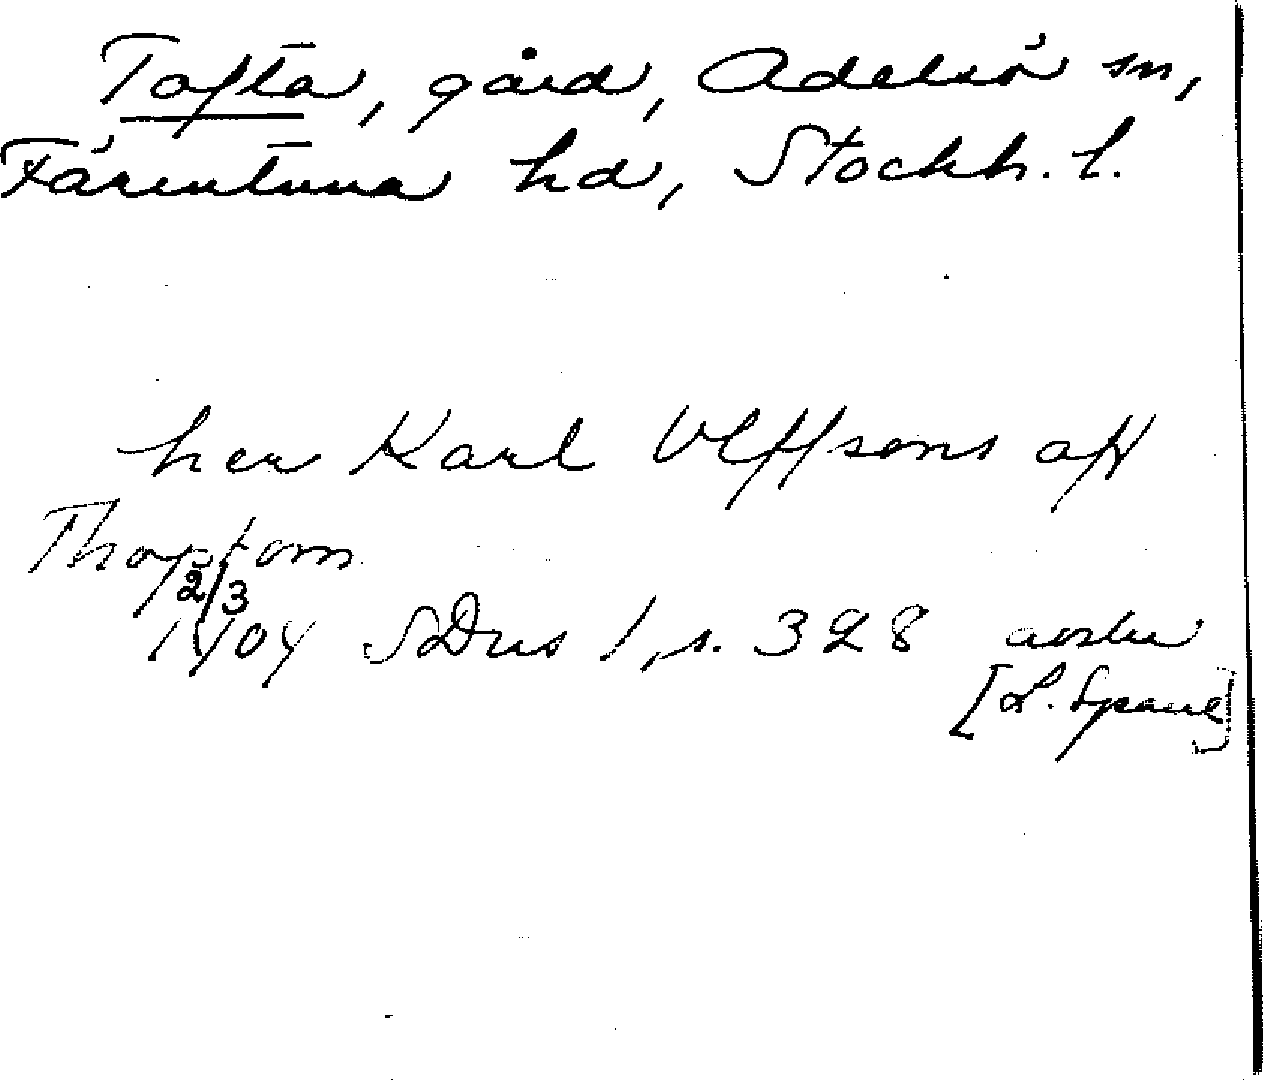 Tofta, gård, Adelsö sn,
Färentuna hd, Stockh. l.
her Karl Vlffsons aff
Thoptom
2/3
1404 SDns 1, s. 328
[L.